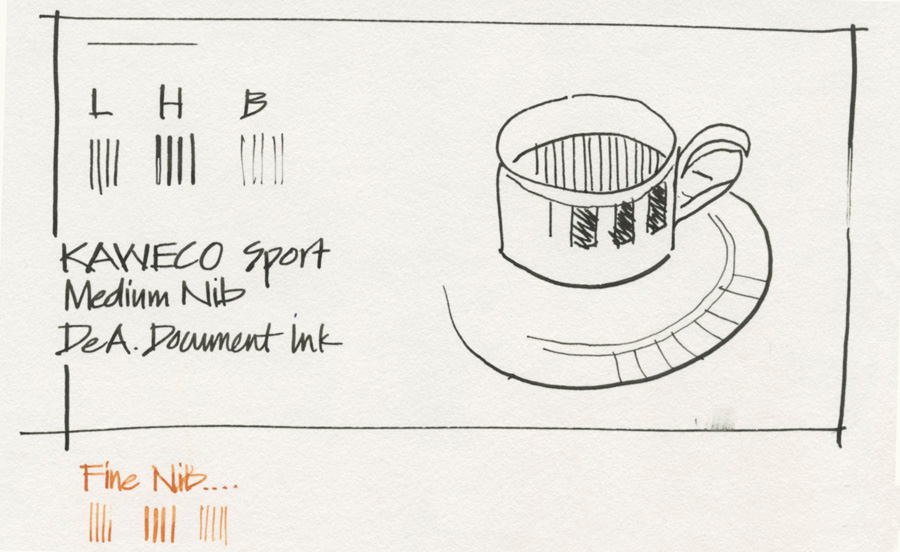 L H B
KAWECO Sport
Medium Nib
DeA. Document ink
Fine NiB....